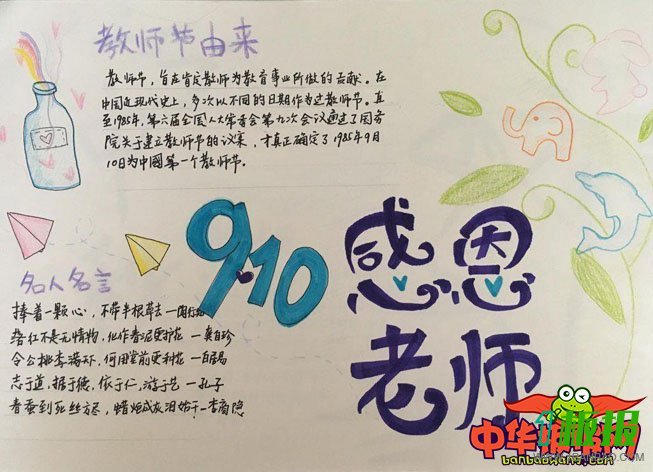 教师节由来
教师节，旨在肯定教师为教育事业所做的贡献。在
中国近现代史上，多次以不同的日期作为过教师节。直
至1985年，第六届全国人大常委会第九次会议通过了国务
院关于建立教师节的议案，才真正确定了1985年9月
10日为中國第一个教师节。
9.10
感恩
老师
名人名言
捧着一颗心，不带半根草去—陶行知
落红不是无情物，化作春泥更护花—龚自珍
令公桃李满天下，何用堂前更种花—白居易
志于道，据于德，依于仁，游于艺—孔子
春蚕到死丝方尽，蜡炬成灰泪始干—李商隐
中华板报网
banbaowang.com